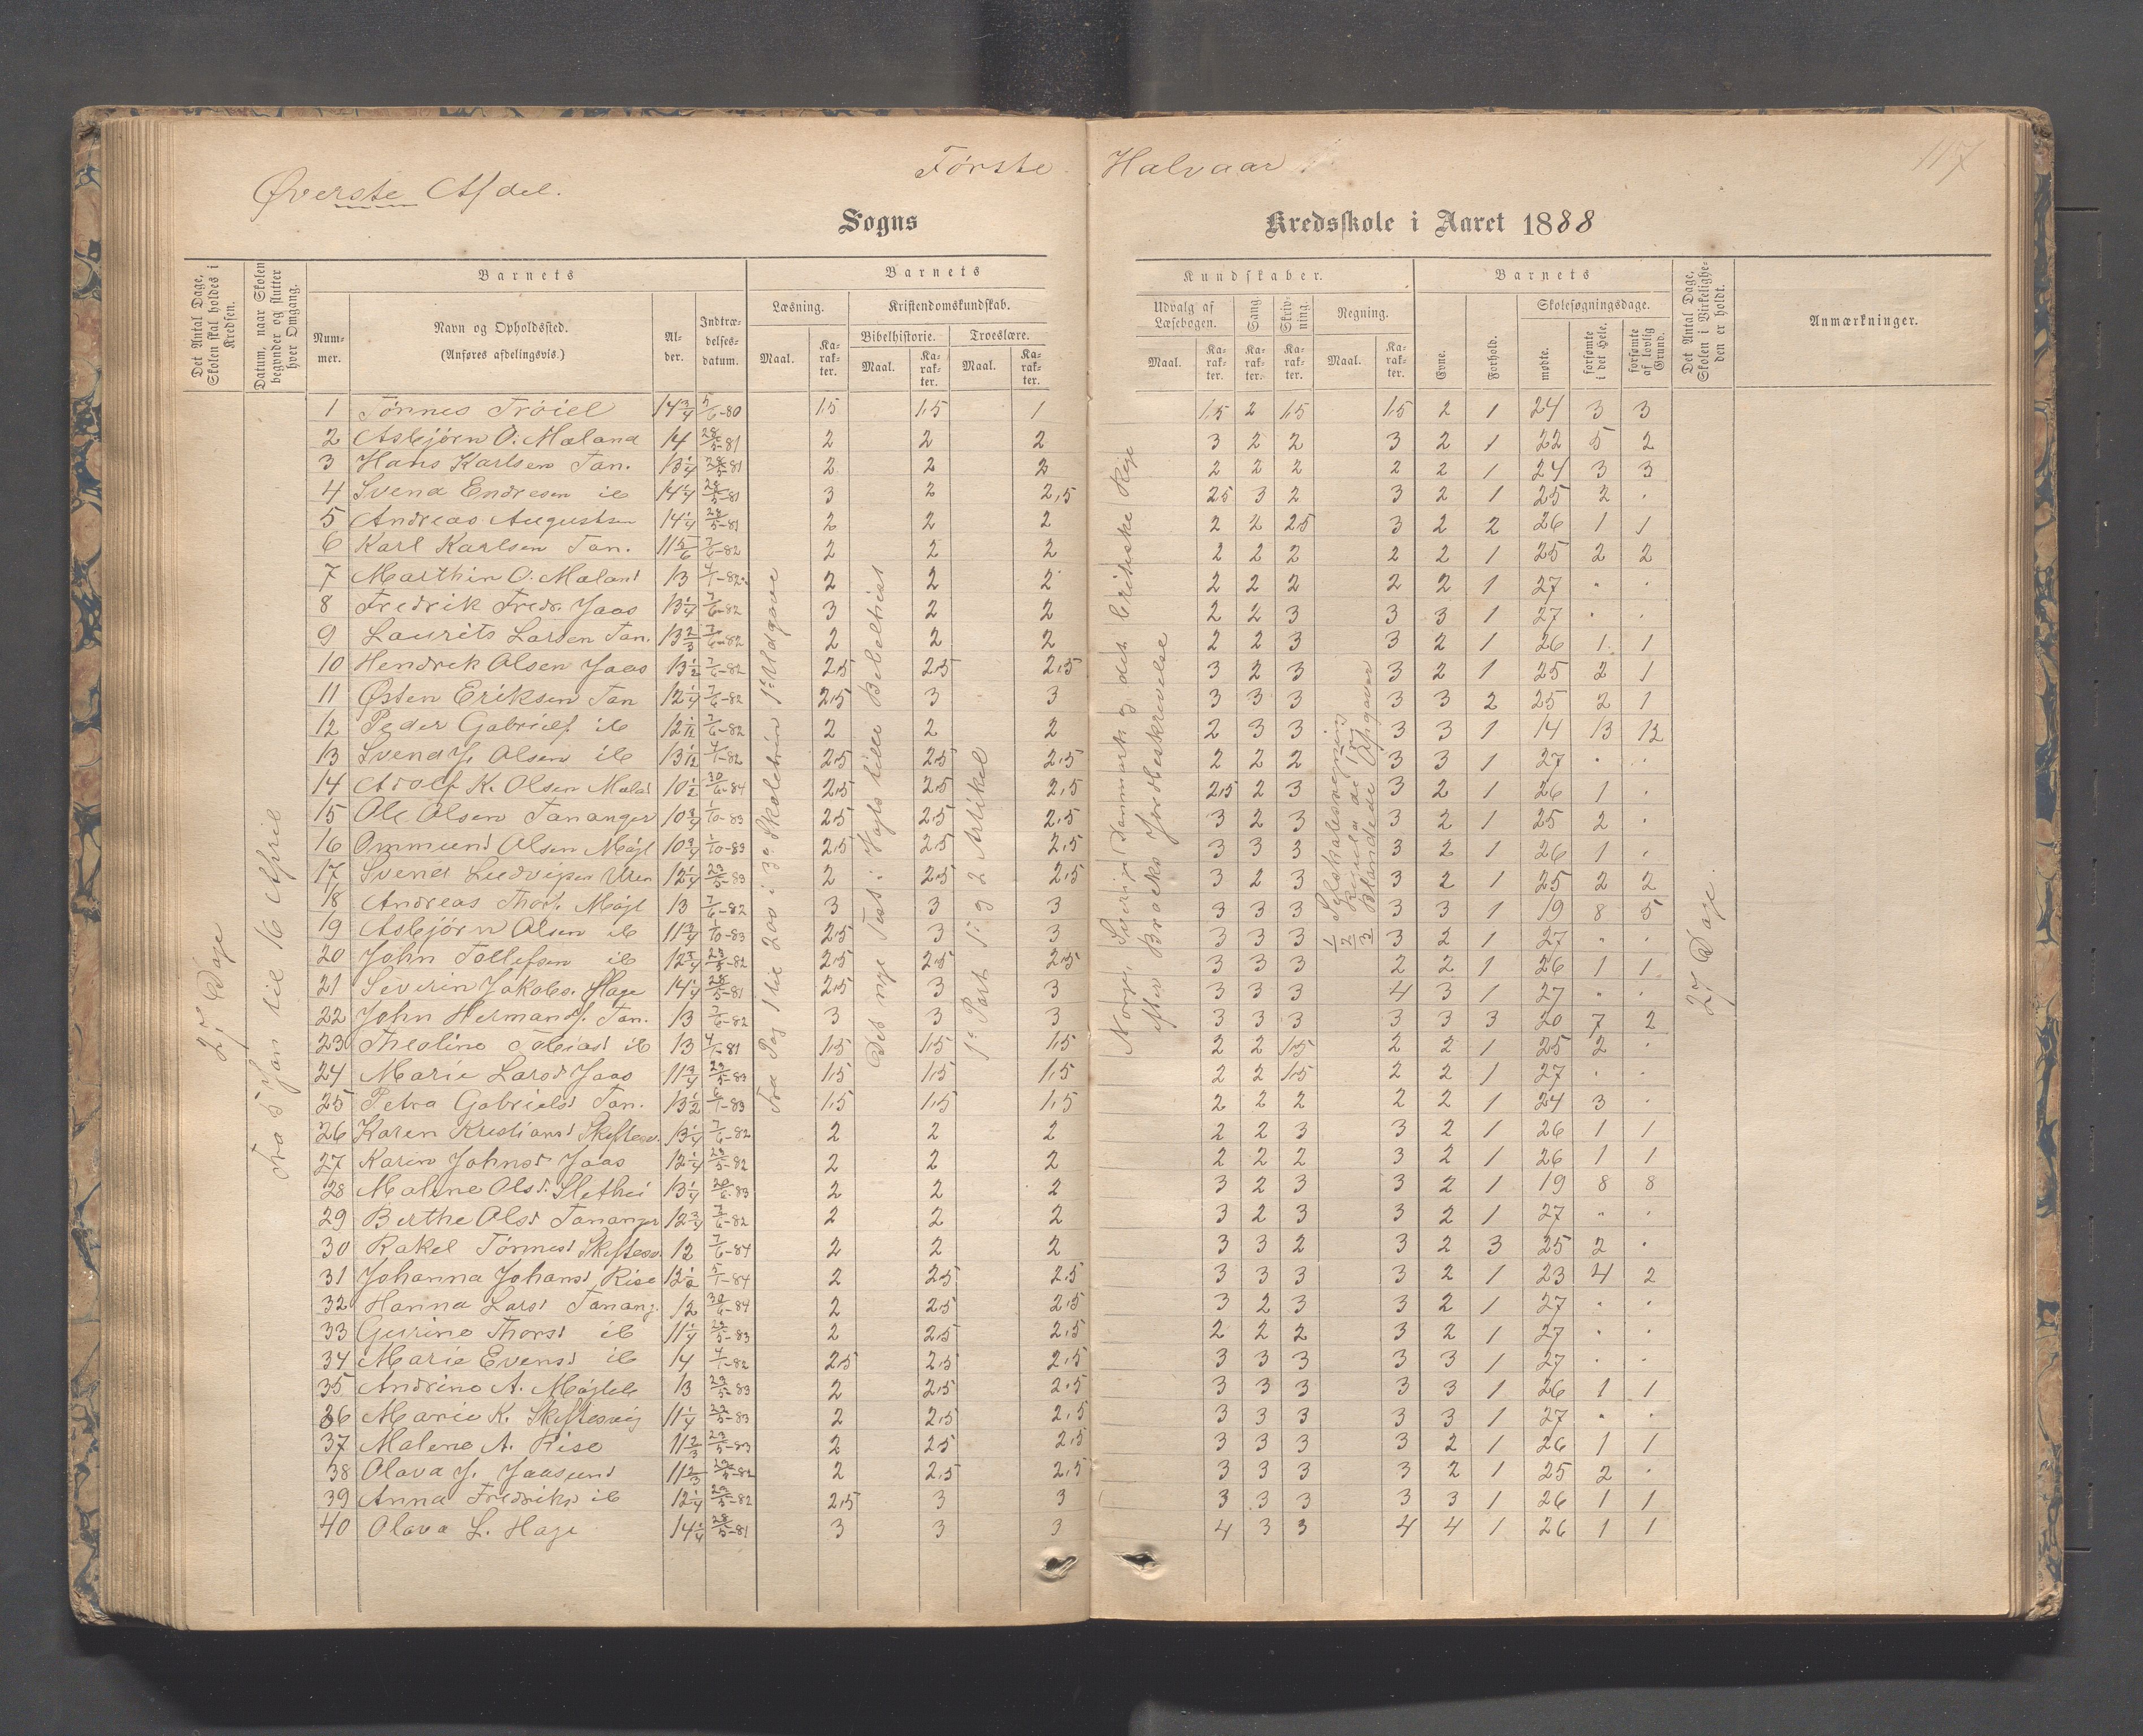 117
Første Halvaar
Øverste Afdel.
Sogns Kredsskole i Aaret 1888
Det Antal Dage, Skolen skal holdes i Kredsen.
Datum, naar Skolen begynder og slutter hver Omgang.
Barnets
Nummer.
Navn og Opholdssted. (Anføres afdelingsvis.)
Alder.
Indtrædelsesdatum.
Barnets Kundskaber.
Læsning.
Kristendomskundskab.
Bibelhistorie.
Troeslære.
Maal. Karakter. Maal. Karakter. Maal. Karakter.
Udvalg af Læsebogen.
Sang.
Skrivning.
Regning.
Maal. Karakter. Karakter. Karakter. Maal. Karakter.
Barnets
Evne.
Forhold.
Skolesøgningsdage.
mødte.
forsømte i det Hele.
forsømte af lovlig Grund.
Det Antal Dage, Skolen i Virkeligheden er holdt.
Anmærkninger.
27 Dage
Fra 5 Jan til 16 April
Fra Pag 1 til 200 i 3e Skoletrin 1e Udgave
Det nye Test: Vogts lille Bibelhist
1e Part 1e og 2 Artikel
Norge, Sverige Danmark og det britiske Rige
efter Brocks Jordbeskrivelse
1
2
3 Blandede Opgaver
27 Dage.
1 Tönnes Tröiel 14 3/4 5/6-80 1,5 1,5 1 1,5 2 1,5 1,5 2 1 24 3 3
2 Asbjörn O. Mæland 14 28/5-81 2 2 2 3 2 2 3 2 1 22 5 2
3 Hans Karlsen Tan. 13 1/4 28/5-81 2 2 2 2 2 2 2 2 1 24 3 3
4 Svend Endresen ib 14 1/4 28/5-81 3 2 2,5 2,5 3 2 3 2 1 25 2 .
5 Andreas Augustsen 14 1/4 28/5-81 2 2 2 2 2 2,5 3 2 2 26 1 1
6 Karl Karlsen Tan. 11 5/6 7/6-82 2 2 2 2 2 2 2 2 1 25 2 2
7 Marthin O. Mæland 13 4/1-82 2 2 2 2 2 2 2 2 1 27 . .
8 Fredrik Fredr. Jaas 13 1/4 7/6-82 3 2 2 2 2 3 3 3 1 27 . .
9 Laurits Larsen Tan. 13 2/3 7/6-82 2 2 2 2 2 3 3 2 1 26 1 1
10 Hendrik Olsen Jaas 13 1/2 7/6-82 2,5 2,5 2,5 3 2 3 3 2 1 25 2 1
11 Østen Eriksen Tan 12 1/4 7/6-82 2,5 3 3 3 3 3 3 3 2 25 2 1
12 Peder Gabriels. ib 12 1/12 7/6-82 2 2 2 2 3 3 3 3 1 14 13 12
13 Svend J. Olsen ib 13 1/12 4/1-82 2,5 2,5 2,5 2 2 2 3 3 1 27 . .
14 Adolf K. Olsen Mæla 10 1/2 30/6-84 2,5 2,5 2,5 2,5 2 3 3 2 1 26 1 .
15 Ole Olsen Tananger 10 3/4 1/10-83 2,5 2,5 2,5 3 2 3 3 2 1 25 2 .
16 Ommund Olsen Mögl 10 3/4 1/10-83 2,5 2,5 2,5 3 3 3 3 2 1 26 1 .
17 Svend Ludvigsen 12 1/4 23/5-83 2 2,5 2,5 3 2 3 3 2 1 25 2 2
18 Andreas Thors. Mögl 13 7/6-82 3 3 3 3 3 3 3 3 1 19 8 5
19 Asbjörn Olsen ib 11 3/4 1/10-83 2,5 3 3 3 3 3 3 2 1 27 . .
20 John Tollefsen ib 12 3/4 23/5-82 2,5 2,5 2,5 3 3 3 2 2 1 26 1 1
21 Severin Jakobs. Hage 14 1/4 28/5-81 2,5 3 3 3 3 3 4 3 1 27 . .
22 John Hermands. Tan. 13 7/6-82 3 3 3 3 3 3 3 3 3 20 7 2
23 Theoline Tobiasd ib 13 4/1-81 1,5 1,5 1,5 2 2 1,5 2 2 1 25 2 .
24 Marie Larsd Jaas 11 3/4 23/5-83 1,5 1,5 1,5 2 2 1,5 2 2 1 27 . .
25 Petra Gabrielsd Tan. 13 1/2 6/1-83 1,5 1,5 1,5 2 2 2 2 2 1 24 3 .
26 Karen Kristiansd Skiftesv. 13 1/4 7/6-82 2 2 2 2 2 3 3 2 1 26 1 1
27 Karen Johnsd Jaas 12 1/4 23/5-82 2 2 2 2 2 2 3 2 1 26 1 1
28 Malene Olsd. Slethei 13 1/4 20/6-83 2 2 2 3 2 3 3 2 1 19 8 8
29 Berthe Olsd Tananger 12 3/4 7/6-82 2 2 2 3 2 3 3 2 1 27 . .
30 Rakel Tönnesd Skiftesv. 12 7/6-84 2 2 2 3 3 2 3 2 3 25 2 .
31 Johanna Johansd Rise 12 1/2 5/1-84 2 2,5 2,5 3 3 3 3 2 1 23 4 2
32 Hanna Larsd Tanang. 12 30/6-84 2 2,5 2,5 3 2 3 3 2 1 27 . .
33 Gurine Thorsd ib 11 1/4 23/5-83 2 2,5 2,5 2 2 2 3 2 1 27 . .
34 Marie Evensd ib 14 4/1-82 2,5 2,5 2,5 3 3 3 3 3 1 27 . .
35 Andrine A. Mögleb 13 23/5-83 2 2,5 2,5 3 3 3 3 3 1 26 1 1
36 Marie K. Skiftesvig 11 1/4 23/5-83 2 2,5 2,5 3 3 3 3 3 1 27 . .
37 Malene A. Rise 11 2/3 23/5-83 2 2,5 2,5 3 3 3 3 2 1 26 1 1
38 Olava J. Jaasund 11 2/3 23/5-82 2 2,5 2,5 3 3 3 3 2 1 25 2 .
39 Anna Fredriks ib 12 1/4 23/5-82 2,5 3 3 3 3 3 3 3 1 26 1 1
40 Olava L. Hage 14 1/4 28/5-81 3 3 3 4 3 3 4 4 1 26 1 1